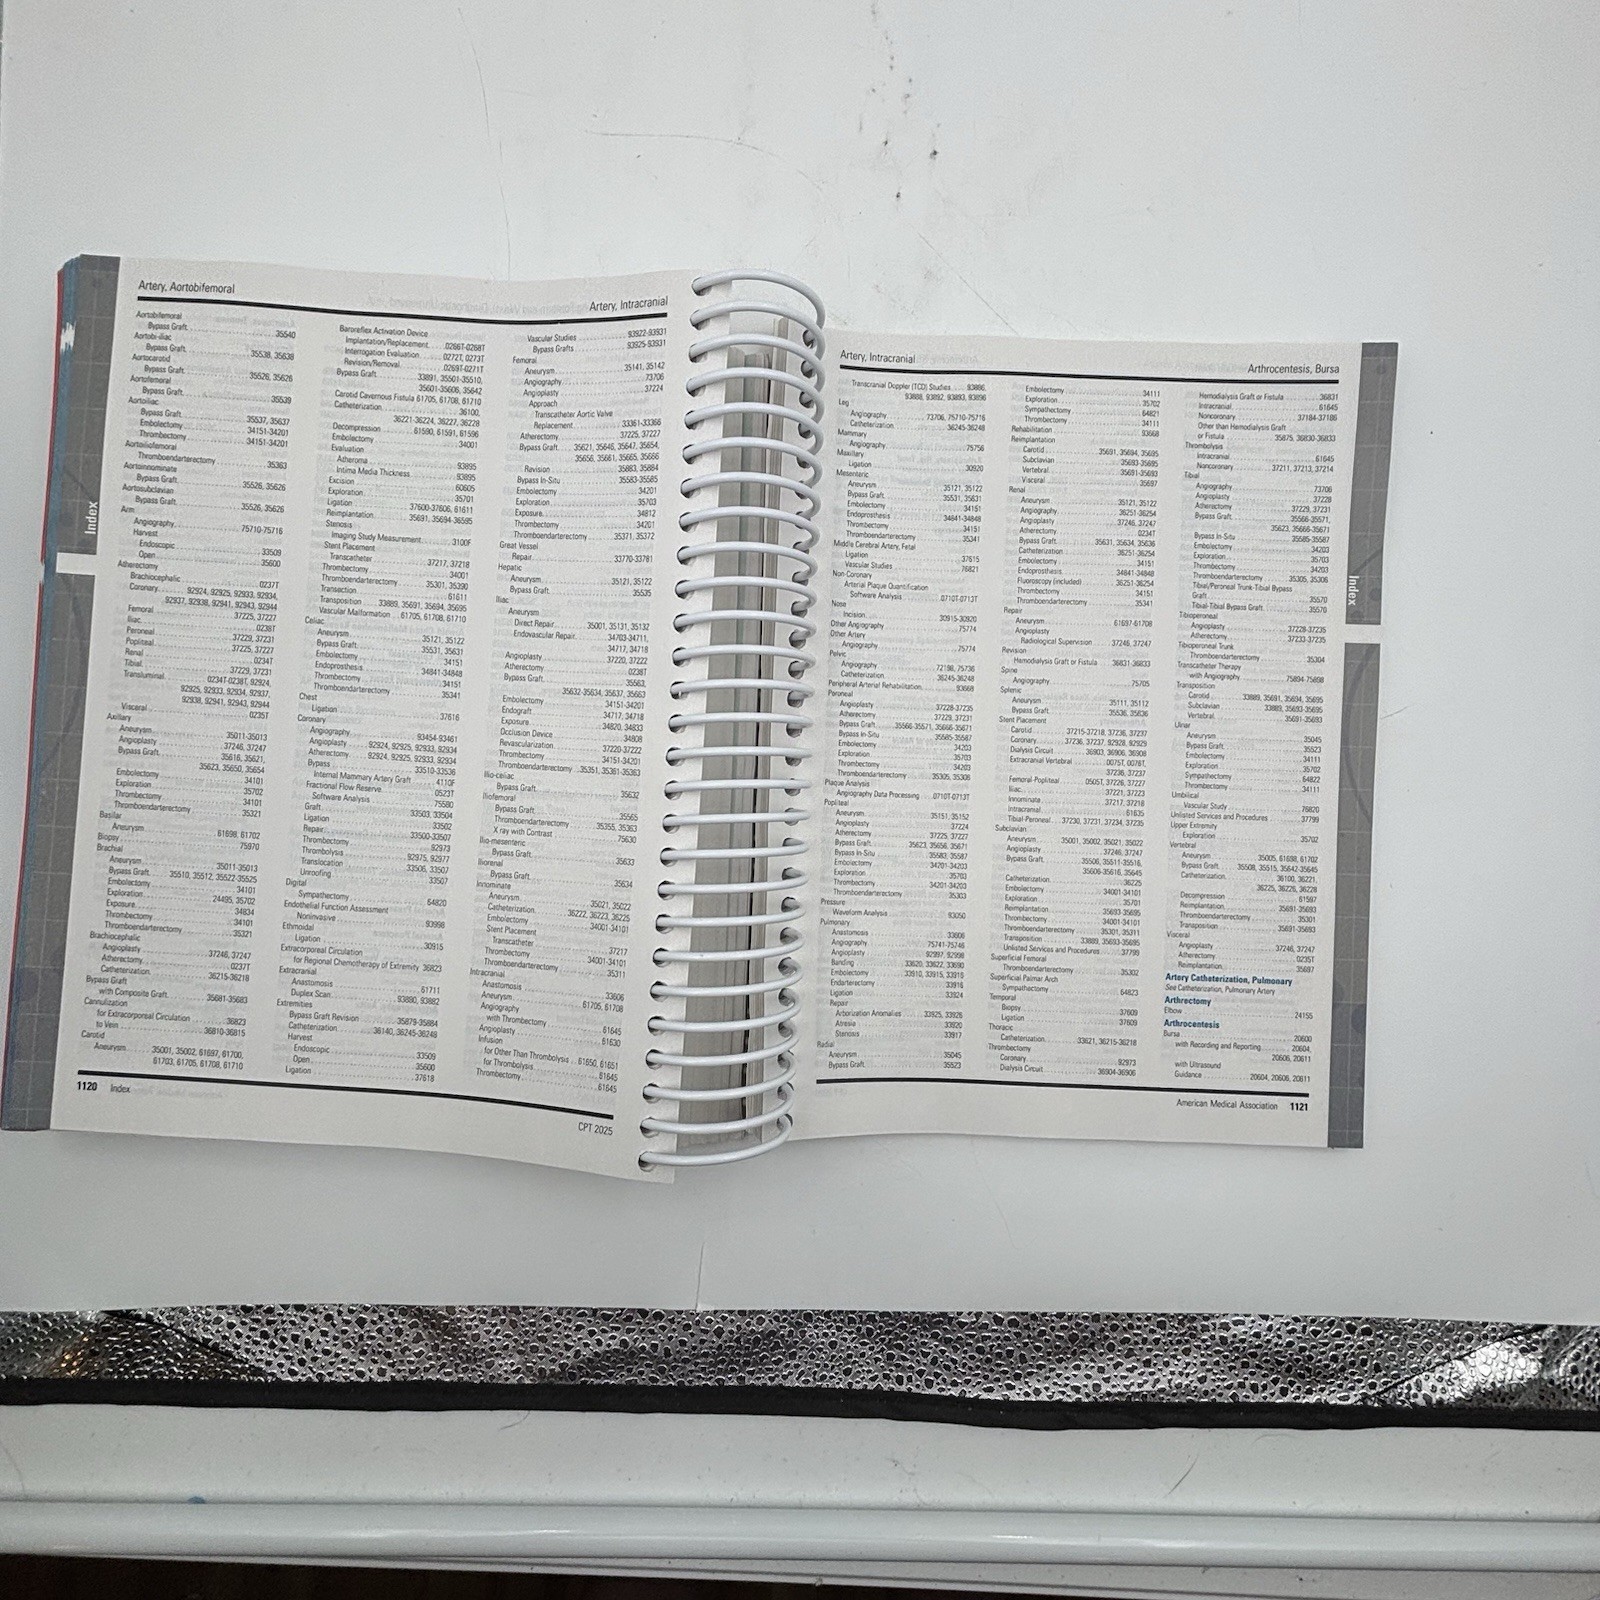 Artery, Aortobifemoral
Artery, Intracranial
Index
Aortobifemoral
Bypass Graft 35540
Aortobi-iliac
Bypass Graft 35538, 35638
Aortocarotid
Bypass Graft 35526, 35626
Aortofemoral
Bypass Graft 35539
Aortoiliac
Bypass Graft 35537, 35637
Embolectomy 34151-34201
Thrombectomy 34151-34201
Aortoiliofemoral
Thromboendarterectomy 35363
Aortoinnominate
Bypass Graft 35526, 35626
Aortosubclavian
Bypass Graft 35526, 35626
Arm
Angiography 75710-75716
Harvest
Endoscopic 33509
Open 35600
Atherectomy
Brachiocephalic 0237T
Coronary 92924, 92925, 92933, 92934,
92937, 92938, 92941, 92943, 92944
Femoral 37225, 37227
Iliac 0238T
Peroneal 37229, 37231
Popliteal 37225, 37227
Renal 0234T
Tibial 37229, 37231
Transluminal 0234T-0238T, 92924,
92925, 92933, 92934, 92937,
92938, 92941, 92943, 92944
Visceral 0235T
Axillary
Aneurysm 35011-35013
Angioplasty 37246, 37247
Bypass Graft 35616, 35621,
35623, 35650, 35654
Embolectomy 34101
Exploration 35702
Thrombectomy 34101
Thromboendarterectomy 35321
Basilar
Aneurysm 61698, 61702
Biopsy 75970
Brachial
Aneurysm 35011-35013
Bypass Graft 35510, 35512, 35522-35525
Embolectomy 34101
Exploration 24495, 35702
Exposure 34834
Thrombectomy 34101
Thromboendarterectomy 35321
Brachiocephalic
Angioplasty 37246, 37247
Atherectomy 0237T
Catheterization 36215-36218
Bypass Graft
with Composite Graft 35681-35683
Cannulization
for Extracorporeal Circulation 36823
to Vein 36810-36815
Carotid
Aneurysm 35001, 35002, 61697, 61700,
61703, 61705, 61708, 61710
Baroreflex Activation Device
Implantation/Replacement 0266T-0268T
Interrogation Evaluation 0272T, 0273T
Revision/Removal 0269T-0271T
Bypass Graft 33891, 35501-35510,
35601-35606, 35642
Carotid Cavernous Fistula 61705, 61708, 61710
Catheterization 36100,
36221-36224, 36227, 36228
Decompression 61590, 61591, 61596
Embolectomy 34001
Evaluation
Atheroma 93895
Intima Media Thickness 93895
Excision 60605
Exploration 35701
Ligation 37600-37606, 61611
Reimplantation 35691, 35694-36595
Stenosis
Imaging Study Measurement 3100F
Stent Placement
Transcatheter 37217, 37218
Thrombectomy 34001
Thromboendarterectomy 35301, 35390
Transection 61611
Transposition 33889, 35691, 35694, 35695
Vascular Malformation 61705, 61708, 61710
Celiac
Aneurysm 35121, 35122
Bypass Graft 35531, 35631
Embolectomy 34151
Endoprosthesis 34841-34848
Thrombectomy 34151
Thromboendarterectomy 35341
Chest
Ligation 37616
Coronary
Angiography 93454-93461
Angioplasty 92924, 92925, 92933, 92934
Atherectomy 92924, 92925, 92933, 92934
Bypass 33510-33536
Internal Mammary Artery Graft 4110F
Fractional Flow Reserve 0523T
Software Analysis 75580
Graft 33503, 33504
Ligation 33502
Repair 33500-33507
Thrombectomy 92973
Thrombolysis 92975, 92977
Translocation 33506, 33507
Unroofing 33507
Digital
Sympathectomy 64820
Endothelial Function Assessment
Noninvasive 93998
Ethmoidal
Ligation 30915
Extracorporeal Circulation
for Regional Chemotherapy of Extremity 36823
Extracranial
Anastomosis 61711
Duplex Scan 93880, 93882
Extremities
Bypass Graft Revision 35879-35884
Catheterization 36140, 36245-36248
Harvest
Endoscopic 33509
Open 35600
Ligation 37618
Vascular Studies 93922-93931
Bypass Grafts 93925-93931
Femoral
Aneurysm 35141, 35142
Angiography 73706
Angioplasty 37224
Approach
Transcatheter Aortic Valve
Replacement 33361-33366
Atherectomy 37225, 37227
Bypass Graft 35621, 35646, 35647, 35654,
35656, 35661, 35665, 35666
Revision 35883, 35884
Bypass In-Situ 35583-35585
Embolectomy 34201
Exploration 35703
Exposure 34812
Thrombectomy 34201
Thromboendarterectomy 35371, 35372
Great Vessel
Repair 33770-33781
Hepatic
Aneurysm 35121, 35122
Bypass Graft 35535
Iliac
Aneurysm
Direct Repair 35001, 35131, 35132
Endovascular Repair 34703-34711,
34717, 34718
Angioplasty 37220, 37222
Atherectomy 0238T
Bypass Graft 35563,
35632-35634, 35637, 35663
Embolectomy 34151-34201
Endograft 34717, 34718
Exposure 34820, 34833
Occlusion Device 34808
Revascularization 37220-37222
Thrombectomy 34151-34201
Thromboendarterectomy 35351, 35361-35363
Ilio-celiac
Bypass Graft 35632
Iliofemoral
Bypass Graft 35565
Thromboendarterectomy 35355, 35363
X ray with Contrast 75630
Ilio-mesenteric
Bypass Graft 35633
Iliorenal
Bypass Graft 35634
Innominate
Aneurysm 35021, 35022
Catheterization 36222, 36223, 36225
Embolectomy 34001-34101
Stent Placement
Transcatheter 37217
Thrombectomy 34001-34101
Thromboendarterectomy 35311
Intracranial
Anastomosis 33606
Aneurysm 61705, 61708
Angiography
with Thrombectomy 61645
Angioplasty 61630
Infusion
for Other Than Thrombolysis 61650, 61651
for Thrombolysis 61645
Thrombectomy 61645
1120 Index
CPT 2025
Artery, Intracranial
Arthrocentesis, Bursa
Index
Transcranial Doppler (TCD) Studies 93886,
93888, 93892, 93893, 93896
Leg
Angiography 73706, 75710-75716
Catheterization 36245-36248
Mammary
Angiography 75756
Maxillary
Ligation 30920
Mesenteric
Aneurysm 35121, 35122
Bypass Graft 35531, 35631
Embolectomy 34151
Endoprosthesis 34841-34848
Thrombectomy 34151
Thromboendarterectomy 35341
Middle Cerebral Artery, Fetal
Ligation 37615
Vascular Studies 76821
Non-Coronary
Arterial Plaque Quantification
Software Analysis 0710T-0713T
Nose
Incision 30915-30920
Other Angiography 75774
Other Artery
Angiography 75774
Pelvic
Angiography 72198, 75736
Catheterization 36245-36248
Peripheral Arterial Rehabilitation 93668
Peroneal
Angioplasty 37228-37235
Atherectomy 37229, 37231
Bypass Graft 35566-35571, 35666-35671
Bypass In-Situ 35585-35587
Embolectomy 34203
Exploration 35703
Thrombectomy 34203
Thromboendarterectomy 35305, 35306
Plaque Analysis
Angiography Data Processing 0710T-0713T
Popliteal
Aneurysm 35151, 35152
Angioplasty 37224
Atherectomy 37225, 37227
Bypass Graft 35623, 35656, 35671
Bypass In-Situ 35583, 35587
Embolectomy 34201-34203
Exploration 35703
Thrombectomy 34201-34203
Thromboendarterectomy 35303
Pressure
Waveform Analysis 93050
Pulmonary
Anastomosis 33606
Angiography 75741-75746
Angioplasty 92997, 92998
Banding 33620, 33622, 33690
Embolectomy 33910, 33915, 33916
Endarterectomy 33916
Ligation 33924
Repair
Arborization Anomalies 33925, 33926
Atresia 33920
Stenosis 33917
Radial
Aneurysm 35045
Bypass Graft 35523
Embolectomy 34111
Exploration 35702
Sympathectomy 64821
Thrombectomy 34111
Rehabilitation 93668
Reimplantation
Carotid 35691, 35694, 35695
Subclavian 35693-35695
Vertebral 35691-35693
Visceral 35697
Renal
Aneurysm 35121, 35122
Angiography 36251-36254
Angioplasty 37246, 37247
Atherectomy 0234T
Bypass Graft 35631, 35634, 35636
Catheterization 36251-36254
Embolectomy 34151
Endoprosthesis 34841-34848
Fluoroscopy (included) 36251-36254
Thrombectomy 34151
Thromboendarterectomy 35341
Repair
Aneurysm 61697-61708
Angioplasty
Radiological Supervision 37246, 37247
Revision
Hemodialysis Graft or Fistula 36831-36833
Spine
Angiography 75705
Splenic
Aneurysm 35111, 35112
Bypass Graft 35536, 35636
Stent Placement
Carotid 37215-37218, 37236, 37237
Coronary 37236, 37237, 92928, 92929
Dialysis Circuit 36903, 36906, 36908
Extracranial Vertebral 0075T, 0076T,
37236, 37237
Femoral-Popliteal 0505T, 37226, 37227
Iliac 37221, 37223
Innominate 37217, 37218
Intracranial 61635
Tibial-Peroneal 37230, 37231, 37234, 37235
Subclavian
Aneurysm 35001, 35002, 35021, 35022
Angioplasty 37246, 37247
Bypass Graft 35506, 35511-35516,
35606-35616, 35645
Catheterization 36225
Embolectomy 34001-34101
Exploration 35701
Reimplantation 35693-35695
Thrombectomy 34001-34101
Thromboendarterectomy 35301, 35311
Transposition 33889, 35693-35695
Unlisted Services and Procedures 37799
Superficial Femoral
Thromboendarterectomy 35302
Superficial Palmar Arch
Sympathectomy 64823
Temporal
Biopsy 37609
Ligation 37609
Thoracic
Catheterization 33621, 36215-36218
Thrombectomy
Coronary 92973
Dialysis Circuit 36904-36906
Hemodialysis Graft or Fistula 36831
Intracranial 61645
Noncoronary 37184-37186
Other than Hemodialysis Graft
or Fistula 35875, 36830-36833
Thrombolysis
Intracranial 61645
Noncoronary 37211, 37213, 37214
Tibial
Angiography 73706
Angioplasty 37228
Atherectomy 37229, 37231
Bypass Graft 35566-35571,
35623, 35666-35671
Bypass In-Situ 35585-35587
Embolectomy 34203
Exploration 35703
Thrombectomy 34203
Thromboendarterectomy 35305, 35306
Tibial/Peroneal Trunk-Tibial Bypass
Graft 35570
Tibial-Tibial Bypass Graft 35570
Tibioperoneal
Angioplasty 37228-37235
Atherectomy 37233-37235
Tibioperoneal Trunk
Thromboendarterectomy 35304
Transcatheter Therapy
with Angiography 75894-75898
Transposition
Carotid 33889, 35691, 35694, 35695
Subclavian 33889, 35693-35695
Vertebral 35691-35693
Ulnar
Aneurysm 35045
Bypass Graft 35523
Embolectomy 34111
Exploration 35702
Sympathectomy 64822
Thrombectomy 34111
Umbilical
Vascular Study 76820
Unlisted Services and Procedures 37799
Upper Extremity
Exploration 35702
Vertebral
Aneurysm 35005, 61698, 61702
Bypass Graft 35508, 35515, 35642-35645
Catheterization 36100, 36221,
36225, 36226, 36228
Decompression 61597
Reimplantation 35691-35693
Thromboendarterectomy 35301
Transposition 35691-35693
Visceral
Angioplasty 37246, 37247
Atherectomy 0235T
Reimplantation 35697
Artery Catheterization, Pulmonary
See Catheterization, Pulmonary Artery
Arthrectomy
Elbow 24155
Arthrocentesis
Bursa 20600
with Recording and Reporting 20604,
20606, 20611
with Ultrasound
Guidance 20604, 20606, 20611
American Medical Association 1121